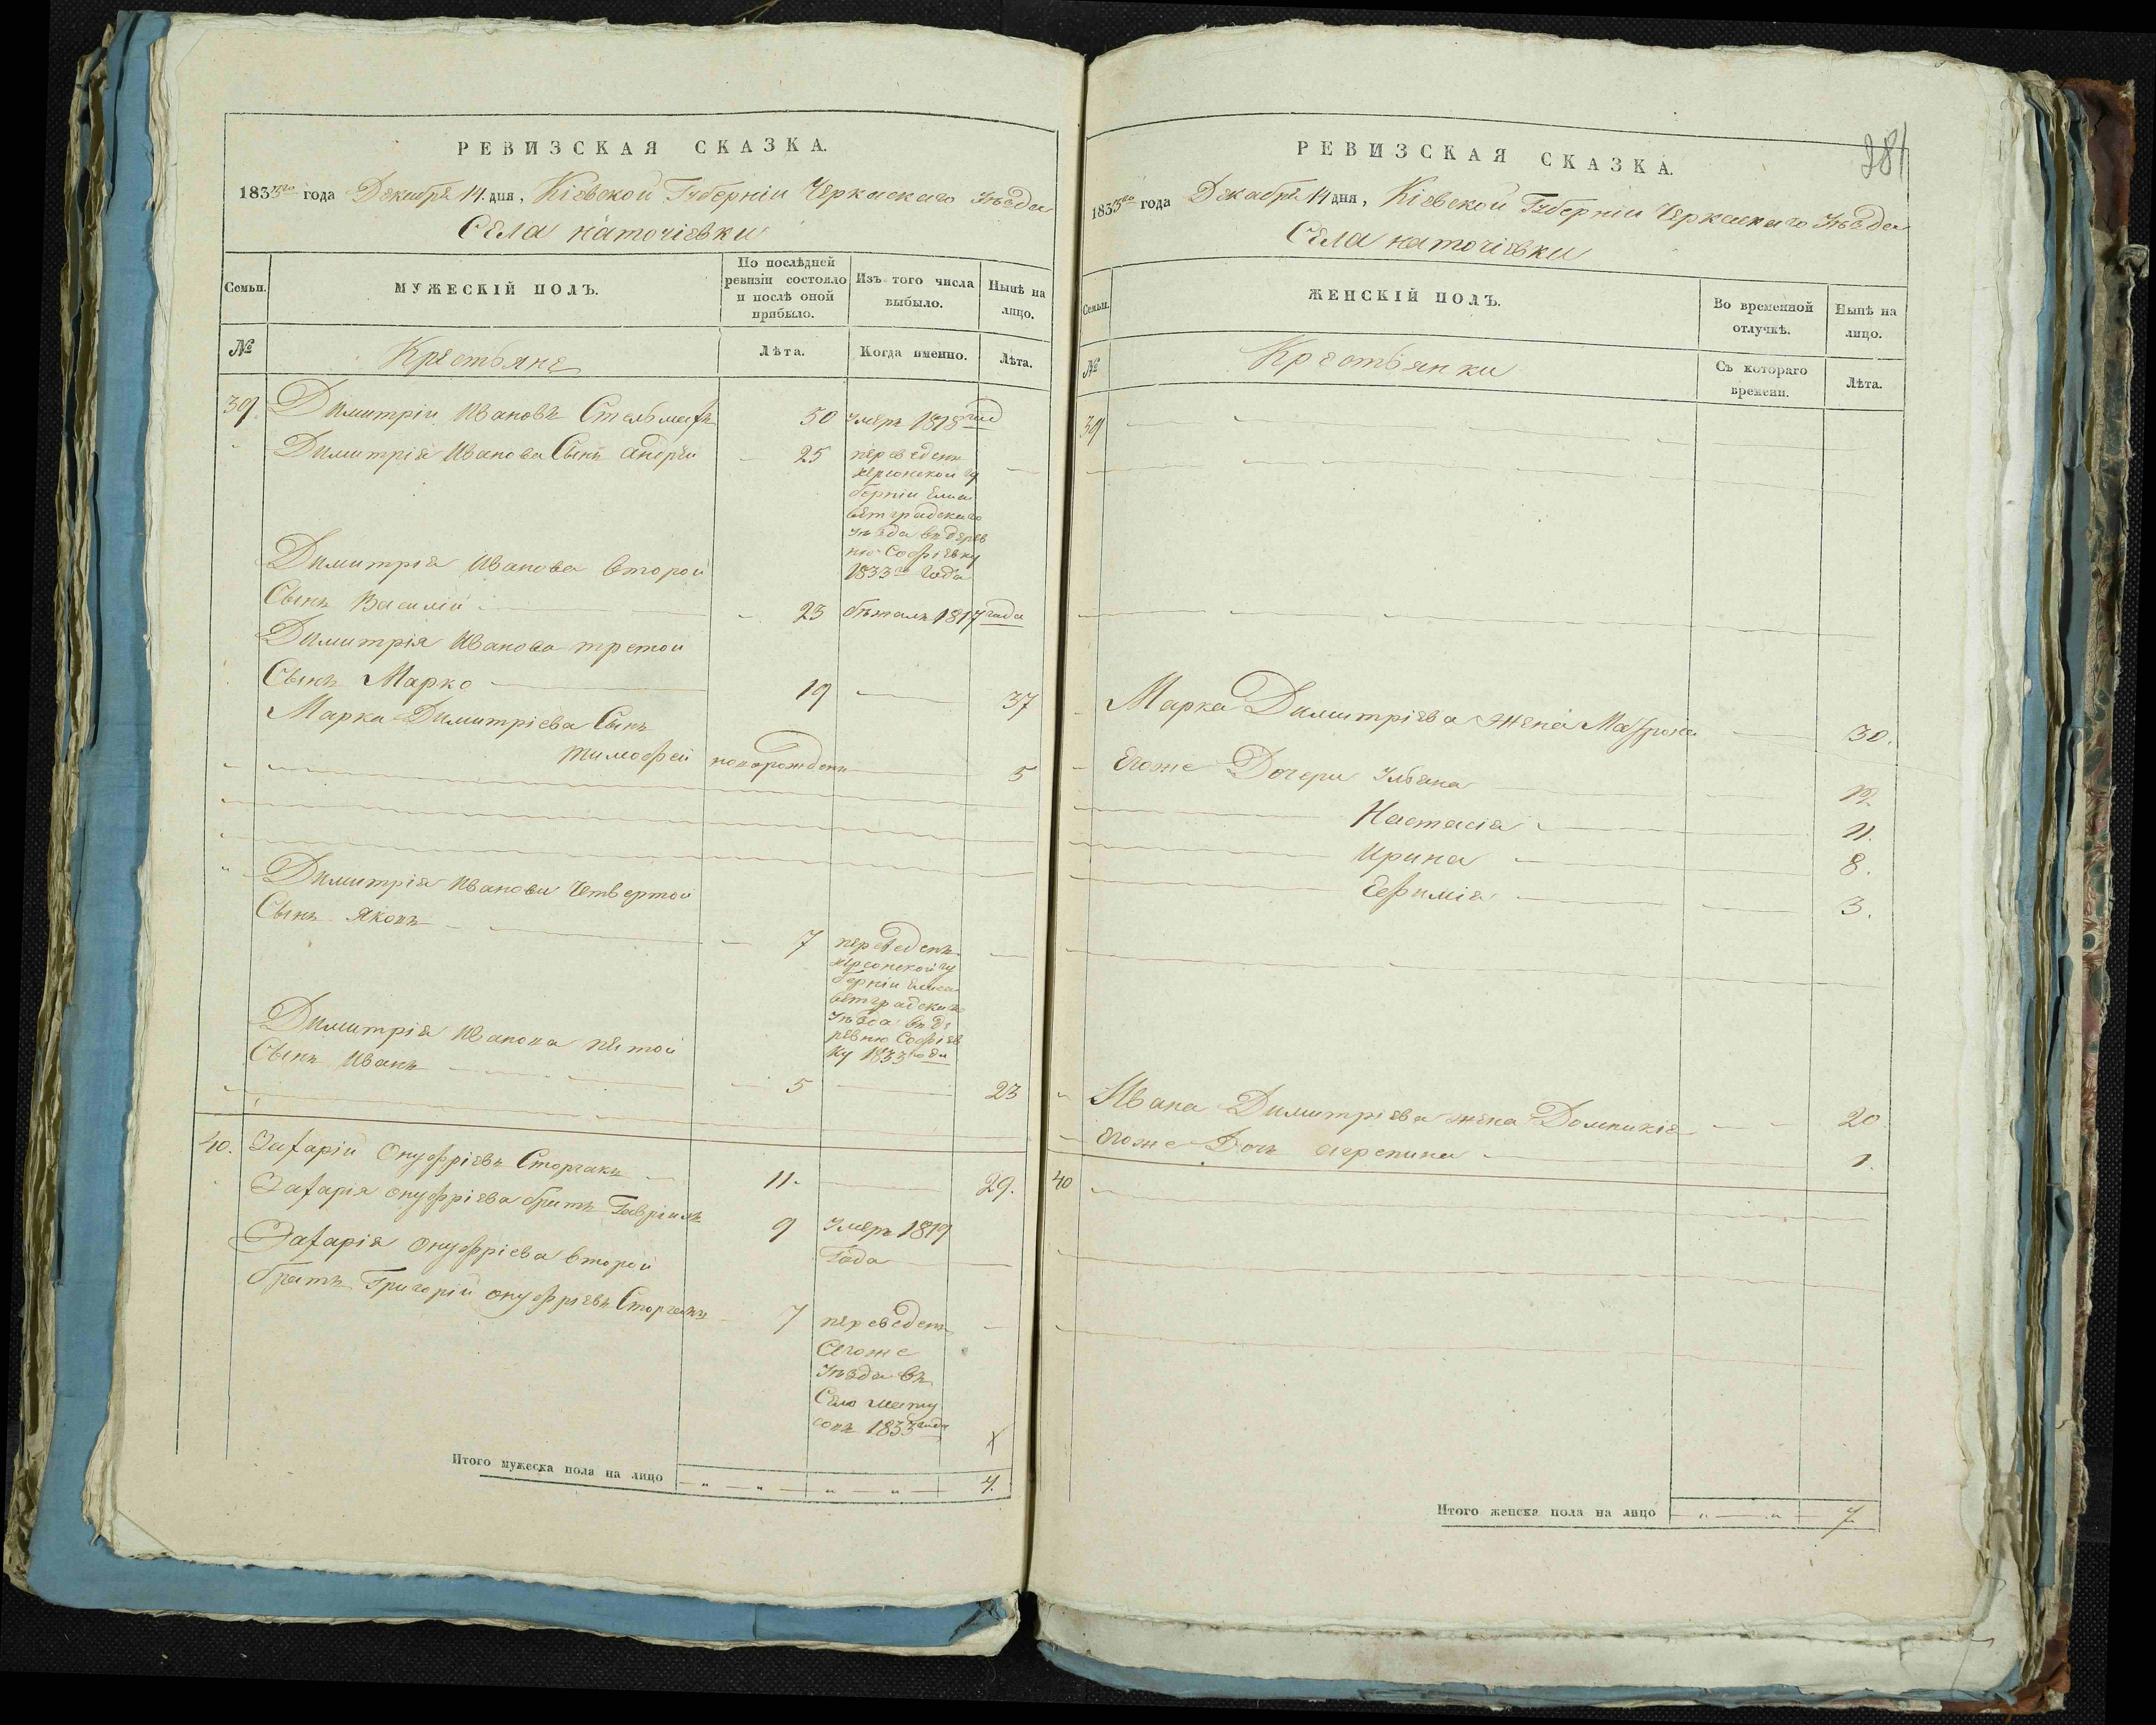 РЕВИЗСКАЯ СКАЗКА.
1833го года Декабря 14. дня, Кіевской Губерніи Черкаскаго Уѣзда
Села Маточіевки
Семьи.
МУЖЕСКІЙ ПОЛЪ.
По послѣдней ревизіи состояло и послѣ оной прибыло.
Изъ того числа выбыло.
Нынѣ на лицо.
№
Крестьяне
Лѣта.
Когда именно.
Лѣта.
39. Димитрій Ивановъ Стельмахъ 50 умеръ 1818 год
Димитрія Иванова Сынъ андрей 25 переведенъ
херсонской гу
берніи Елиса
ветградскаго
уѣзда въ дерев
ню Софіевку
1833го года
Димитрія Иванова второй
Сынъ Василій 23 бѣжалъ 1817 года
Димитрія Иванова третой
Сынъ Марко 19 37
Марка Димитріева Сынъ
тимофей новорожденъ 5
Димитрія Иванова Четвертой
Сынъ Яковъ 7 переведенъ
херсонской гу
берніи Елиса
ветградскаго
уѣзда въ де
ревню Софіев
ку 1833 года
Димитрія Иванова пятой
Сынъ Иванъ 5 23
40. Захарій Онуфріевъ Сторчакъ 11. 29.
Захарія онуфріева братъ Гавріилъ 9 умеръ 1819
Года
Захарія Онуфріева второй
братъ Григорій онуфріевъ Сторчакъ 7 переведенъ
Сегоже
Уѣзда въ
Село мату
совъ 1833 года
Итого мужеска пола на лицо 4.
381
РЕВИЗСКАЯ СКАЗКА.
1833го года Декабря 14 дня, Кіевской Губерніи Черкаскаго Уѣзда
Села Маточіевки
Семьи.
ЖЕНСКІЙ ПОЛЪ.
Во временной отлучкѣ.
Нынѣ на лицо.
№
Крестьянки
Съ котораго времени.
Лѣта.
39
Марка Димитріева жена Мафрона 30.
Егоже Дочери Ульяна 12.
Настасія 11.
Ирина 8.
Ефимія 3.
Ивана Димитріева жена Домникія 20
Егоже Дочь агрепина 1.
40
Итого женска пола на лицо 7